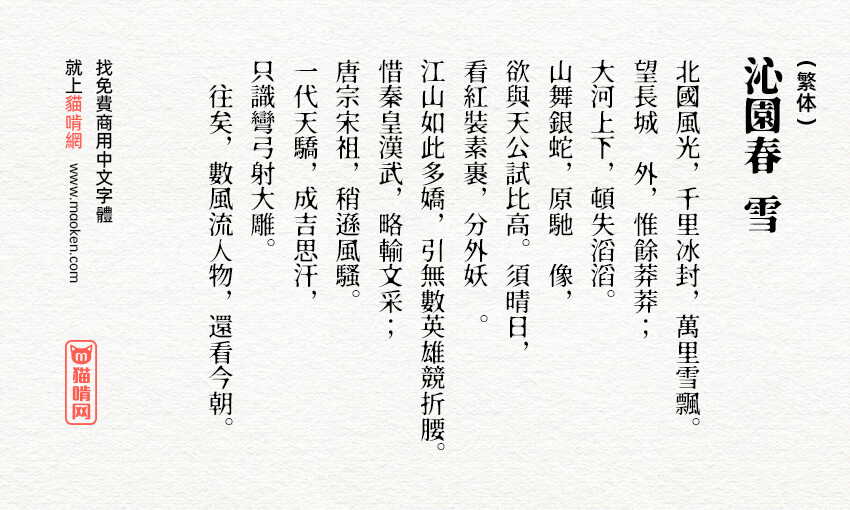 (繁体)
沁園春 雪
北國風光，千里冰封，萬里雪飄。
望長城 外，惟餘莽莽；
大河上下，頓失滔滔。
山舞銀蛇，原馳 像，
欲與天公試比高。須晴日，
看紅裝素裹，分外妖 。
江山如此多嬌，引無數英雄競折腰。
惜秦皇漢武，略輸文采；
唐宗宋祖，稍遜風騷。
一代天驕，成吉思汗，
只識彎弓射大雕。
往矣，數風流人物，還看今朝。
找免費商用中文字體
就上貓啃網 www.maoken.com
猫啃网